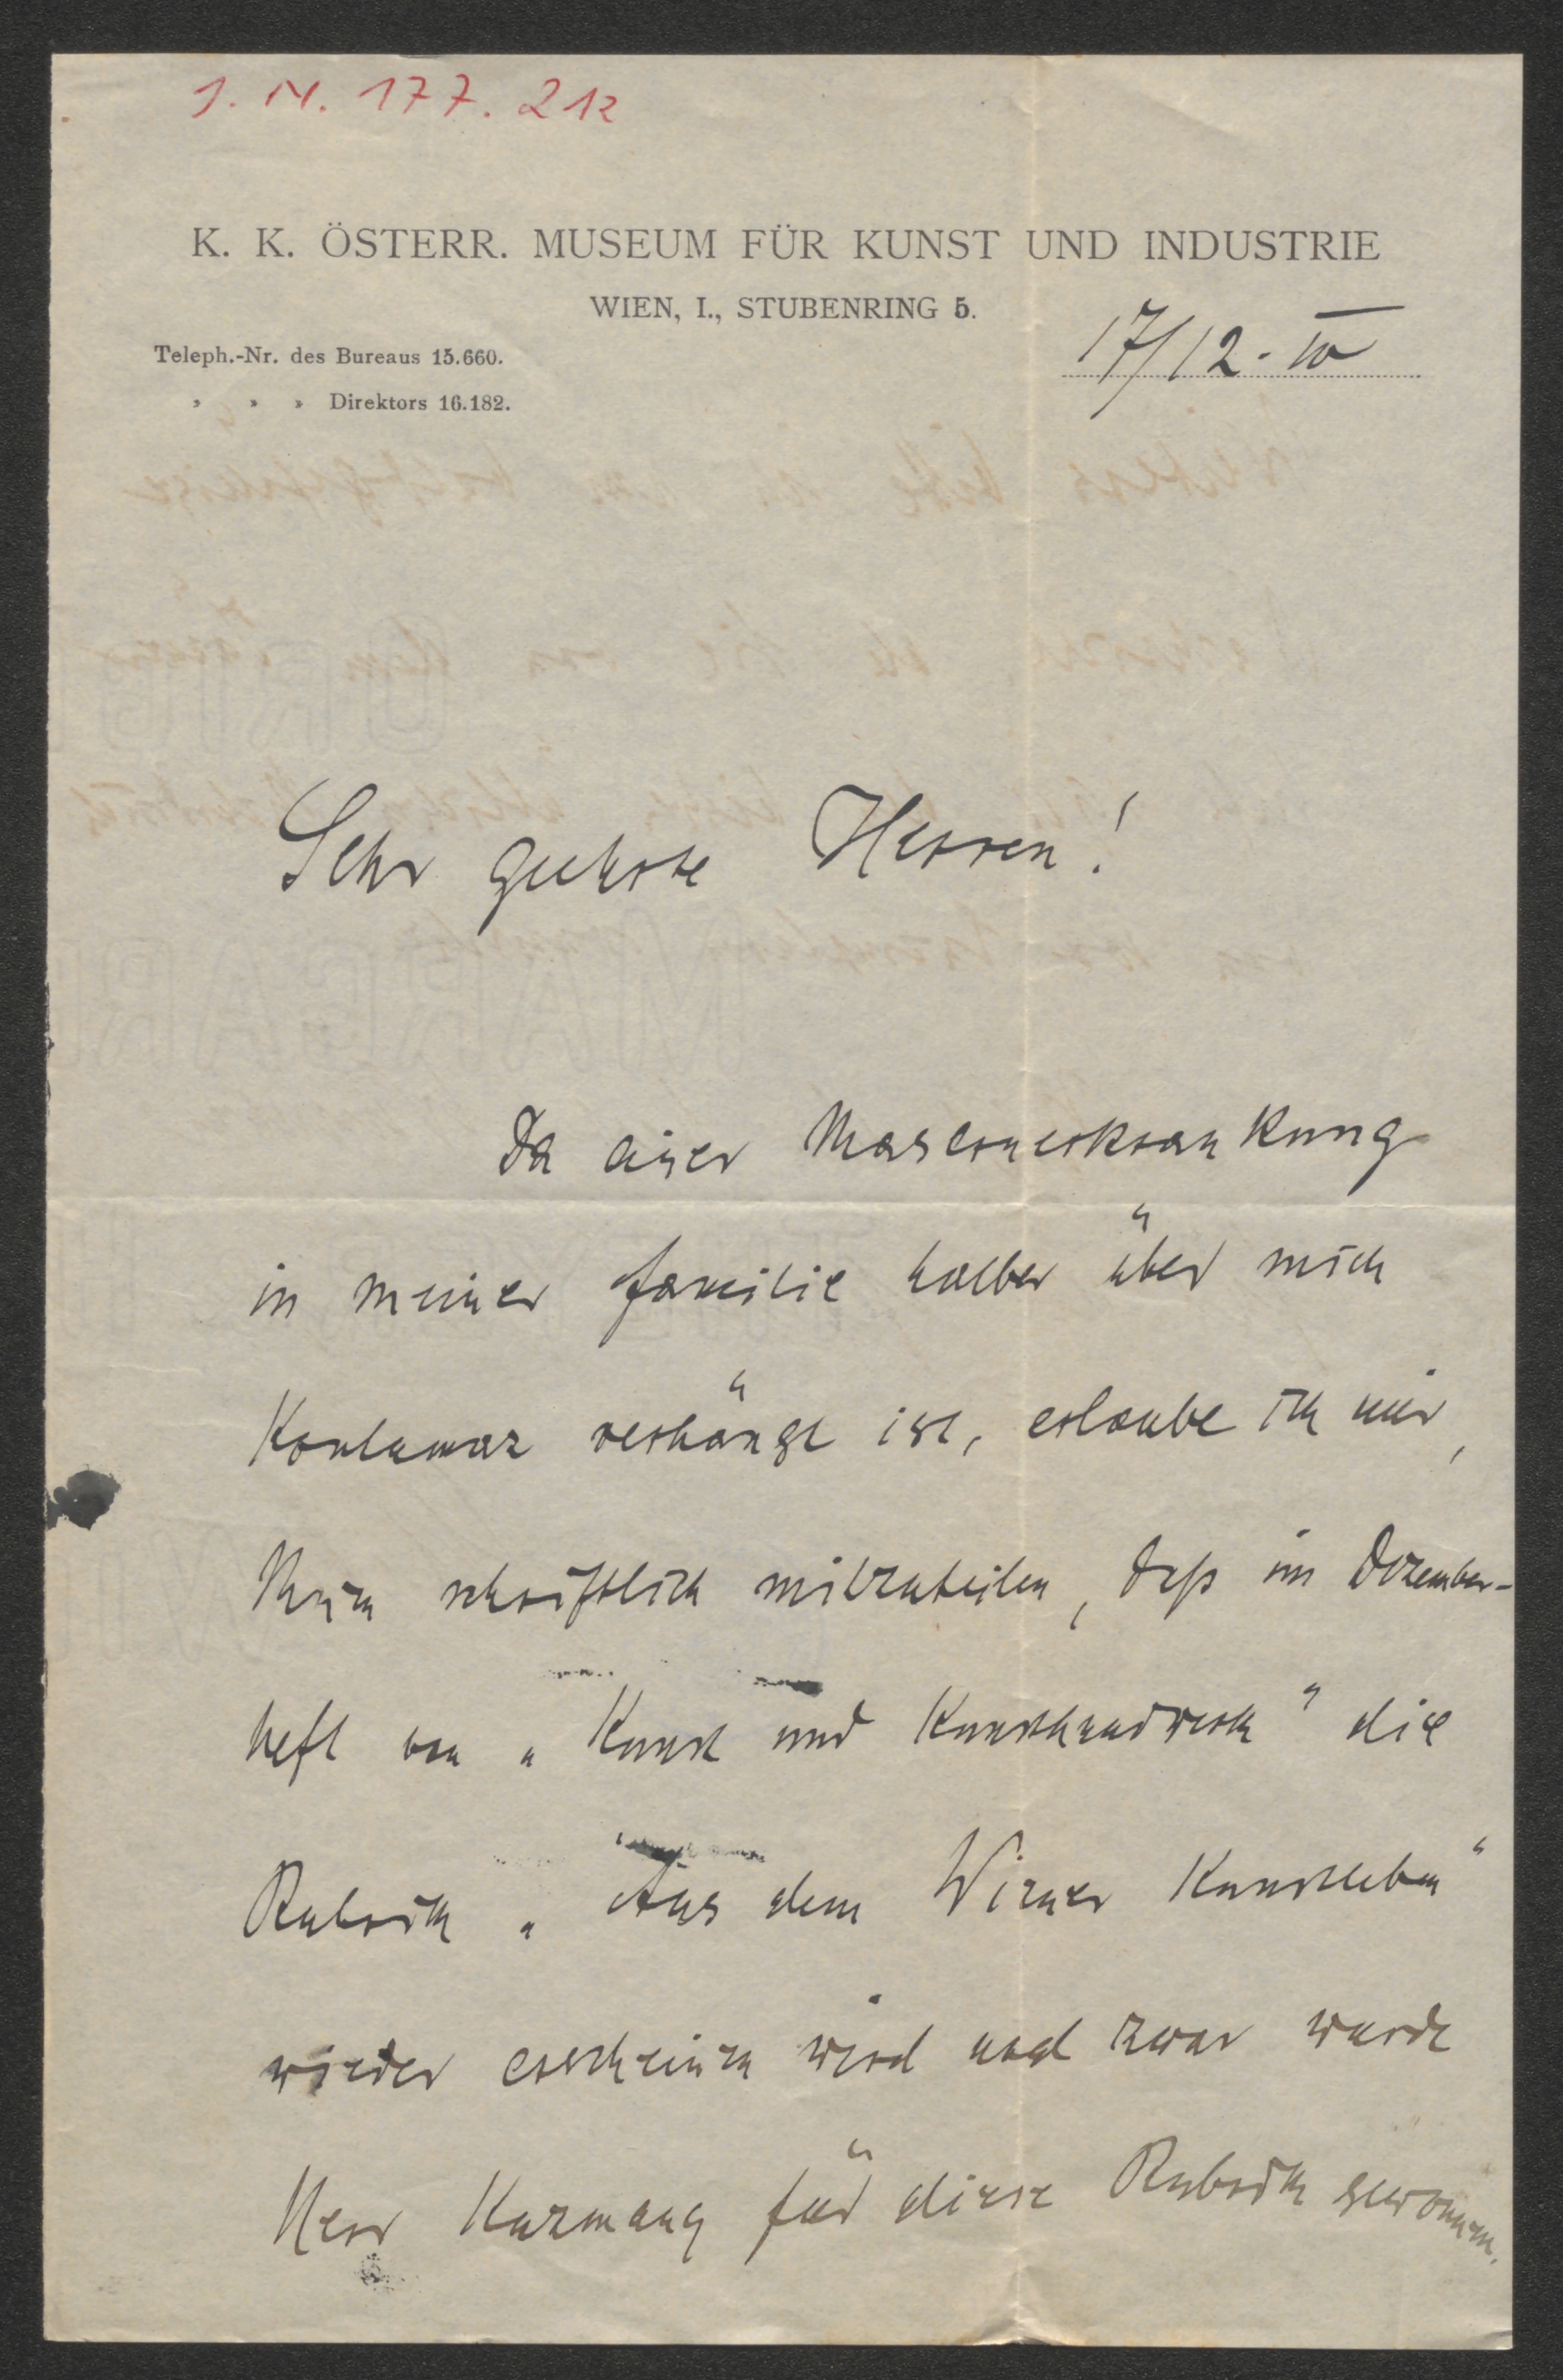 J. N. 177.212
K. K. ÖSTERR. MUSEUM FÜR KUNST UND INDUSTRIE
WIEN, I., STUBENRING 5.
17/12. IV
Teleph.-Nr. des Bureaus 15.660.
» » » Direktors 16.182.
Sehr geehrte Herren!
Da einer Masernerkrankung
in meiner Familie halber über mich
Kontumaz verhängt ist, erlaube ich mir,
Ihnen schriftlich mitzuteilen, daß im Dezember-
heft von „Kunst und Kunsthandwerk" die
Rubrik „Aus dem Wiener Kunstleben"
wieder erscheinen wird und zwar wurde
Herr Kuzmany für diese Rubrik gewonnen.